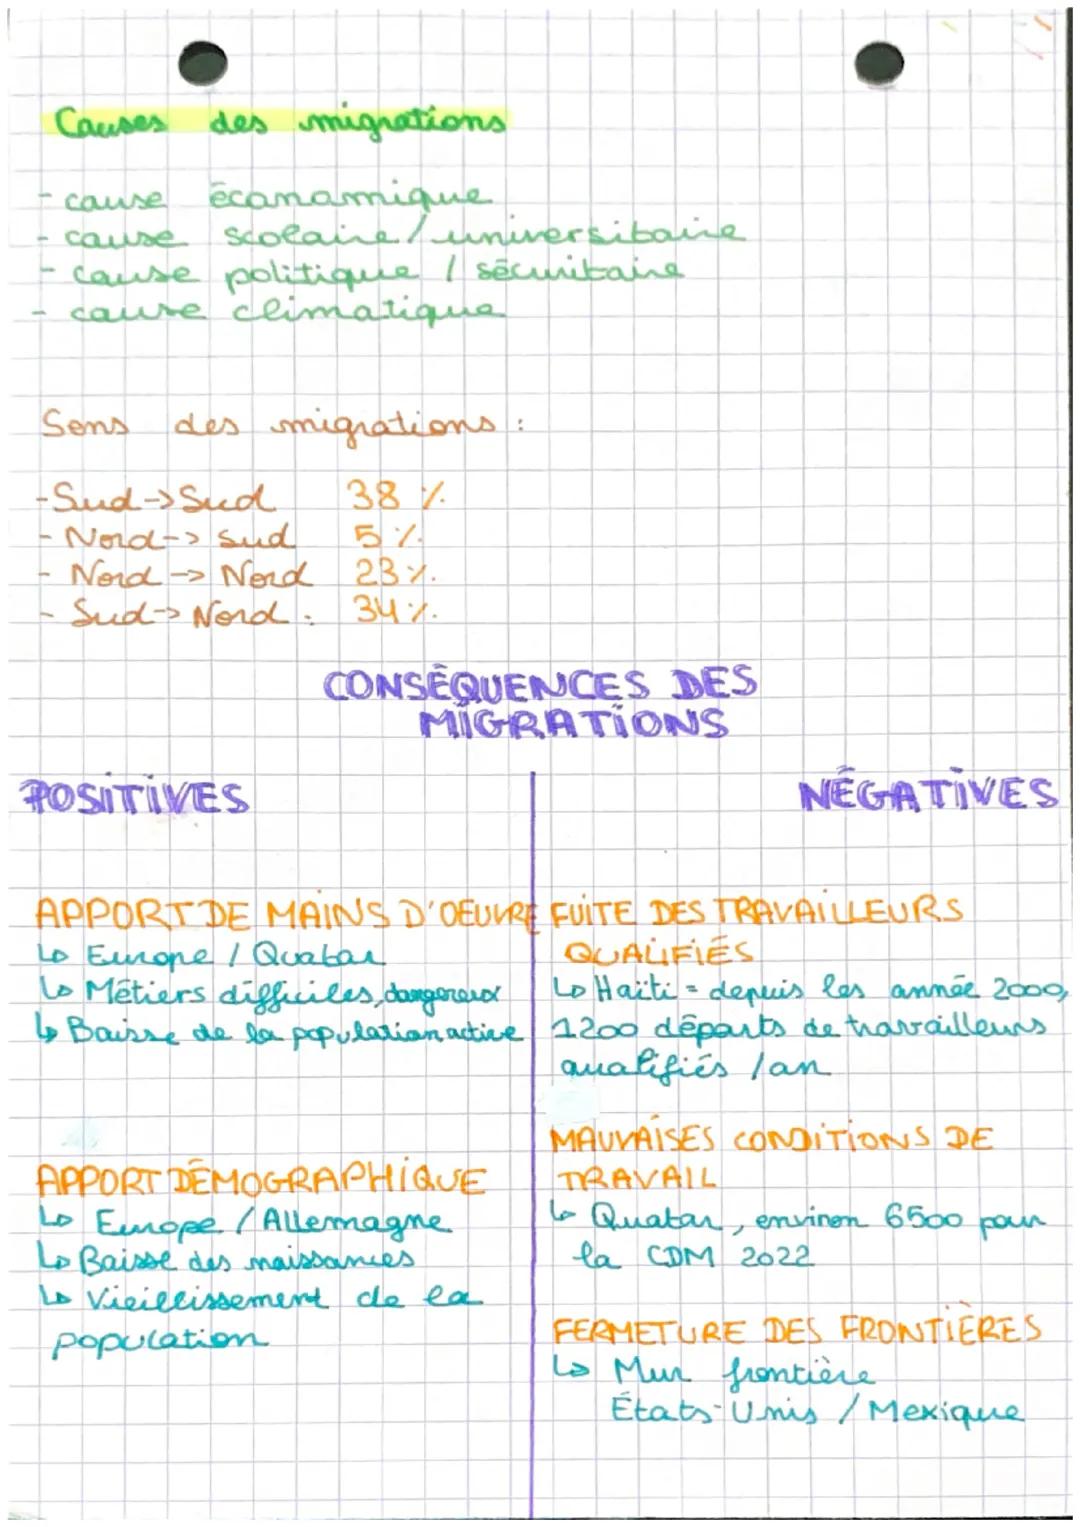 Causes des migrations
- cause économique
- cause scolaire / universitaire
- cause politique / sécuritaire
- cause climatique
Sens des migrations :
- Sud -> Sud 38 %
- Nord --> Sud 5 %.
- Nord -> Nord 23 %.
- Sud -> Nord : 34 %.
CONSÉQUENCES DES
MIGRATIONS
POSITIVES
APPORT DE MAINS D'OEUVRE
↳ Europe / Quatar
↳ Métiers difficiles, dangereux
↳ Baisse de la population active
APPORT DÉMOGRAPHIQUE
↳ Europe / Allemagne
↳ Baisse des naissances
↳ Vieillissement de la
population
NÉGATIVES
FUITE DES TRAVAILLEURS
QUALIFIÉS
↳ Haïti = depuis les année 2000,
1200 départs de travailleurs
qualifiés / an
MAUVAISES CONDITIONS DE
TRAVAIL
↳ Quatar, environ 6500 pour
la CDM 2022
FERMETURE DES FRONTIÈRES
↳ Mur frontière
États-Unis / Mexique